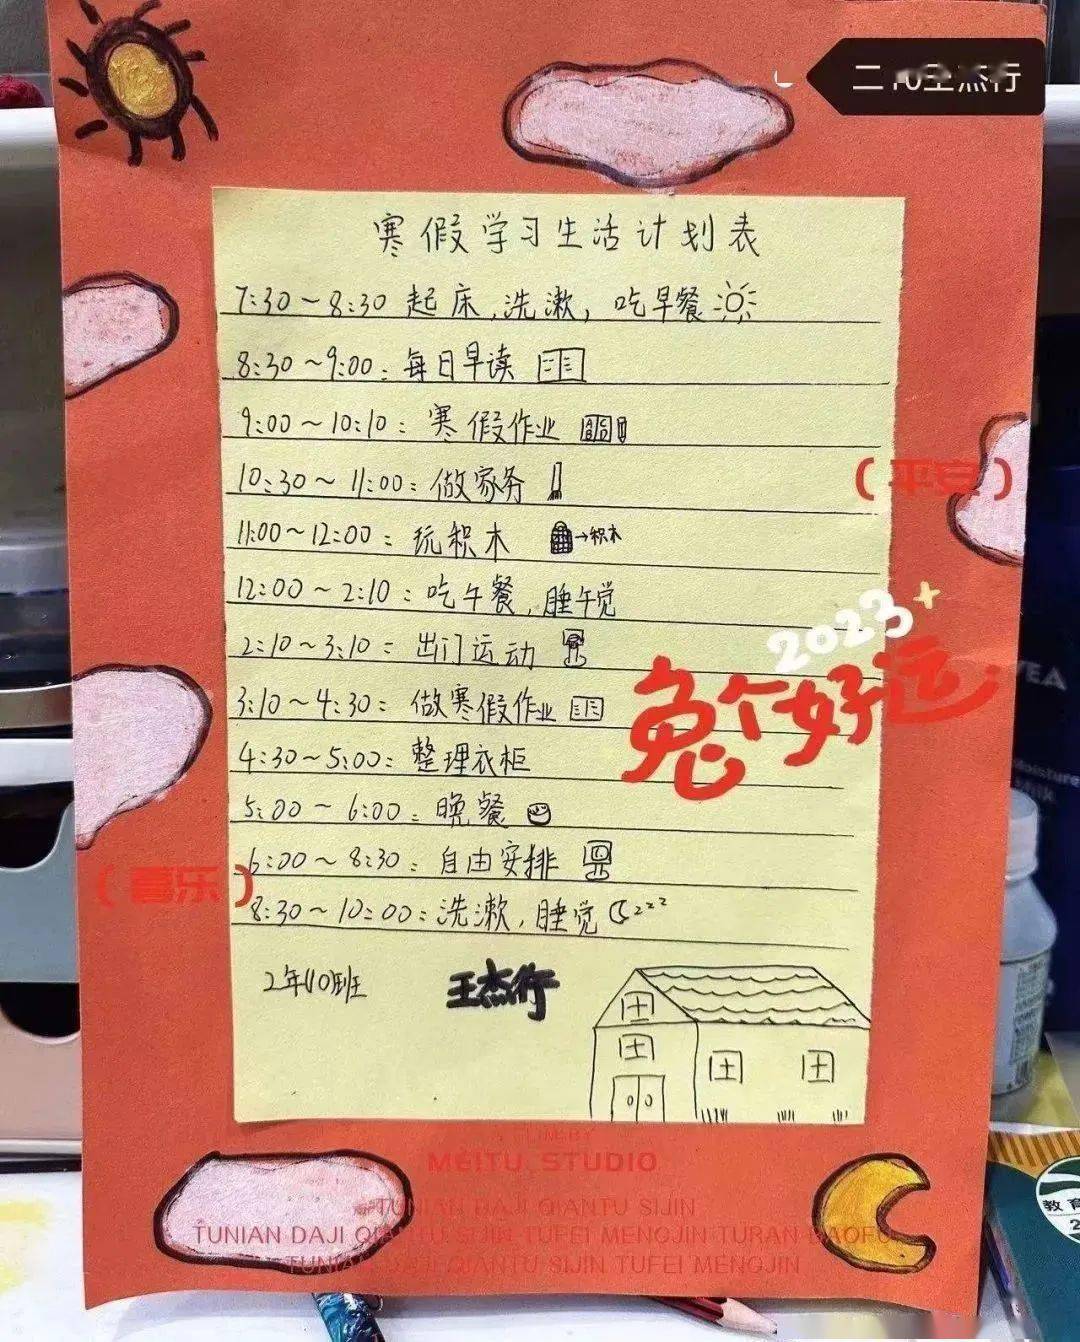 寒假学习生活计划表
7:30~8:30 起床,洗漱,吃早餐
8:30~9:00:每日早读
9:00~10:10:寒假作业
10:30~11:00:做家务
(平安)
11:00~12:00:玩积木 →积木
12:00~2:10:吃午餐,睡午觉
2023+
2:10~3:10:出门运动
兔个好运
3:10~4:30:做寒假作业
4:30~5:00:整理衣柜
5:00~6:00:晚餐
6:00~8:30:自由安排
(喜乐)
8:30~10:00:洗漱,睡觉 zzz
2年10班 王杰行
MEITU STUDIO
TUNIAN DAJI QIANTU SIJIN
TUNIAN DAJI QIANTU SIJIN TUFEI MENGJIN TURAN BAOFU
QIANTU SIJIN TUFEI MENGJIN
教育